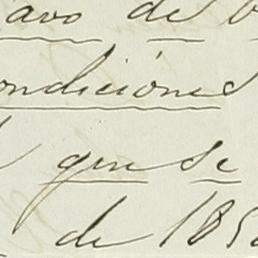 avo de
ondiciones
que se
de 185